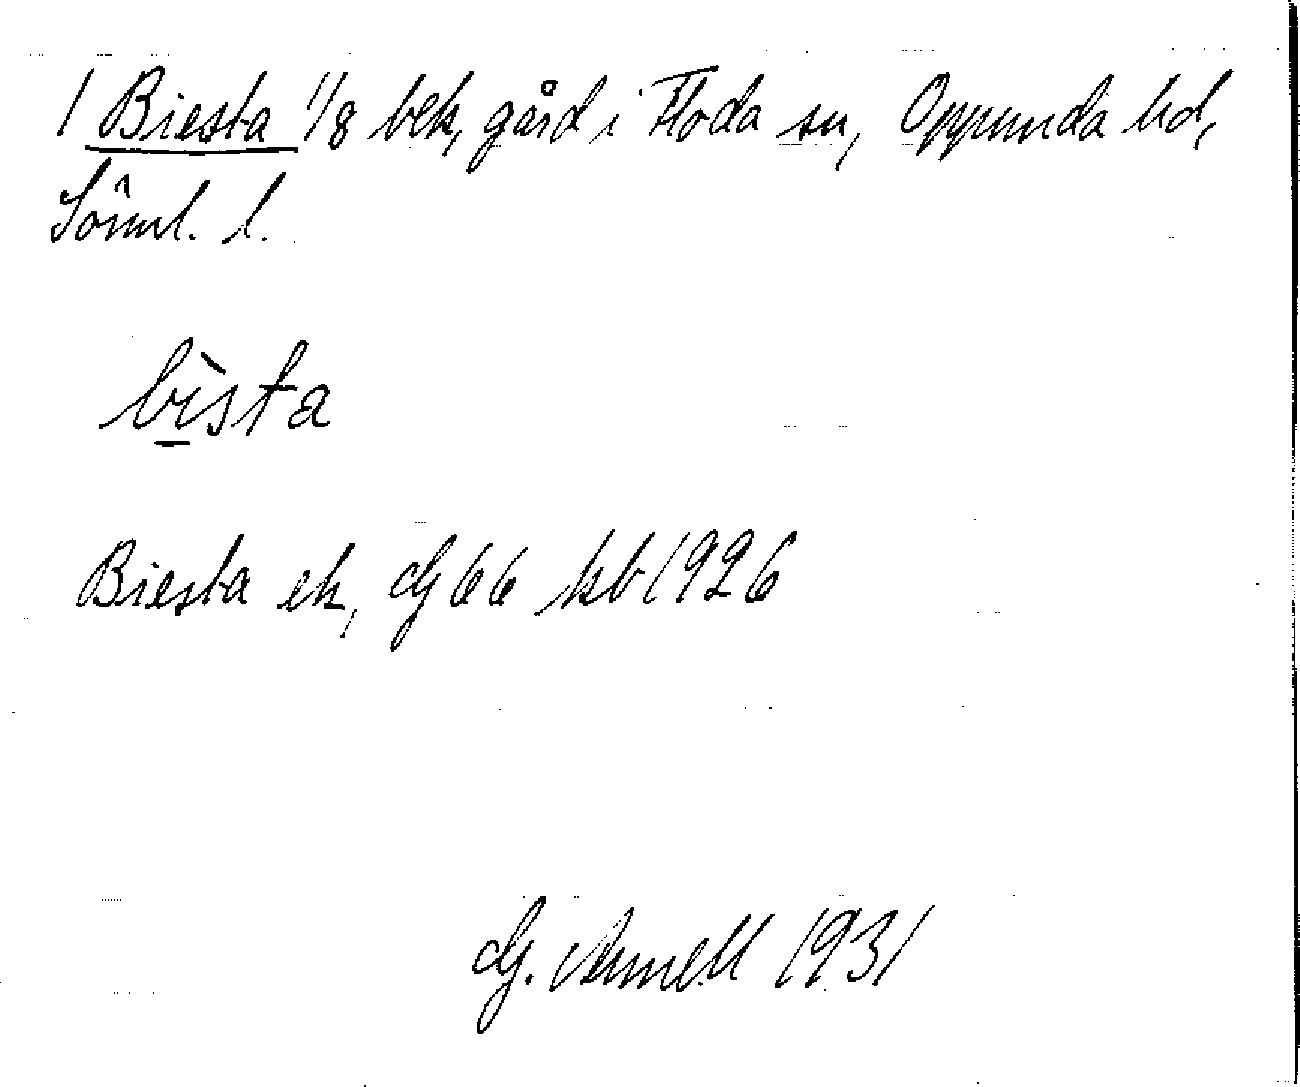 1 Biesta 1/8 bek, gård i Floda sn, Oppunda hd,
Sörml. l.
bìsta
Biesta ek, G 66 kb 1926
G. Annell 1931